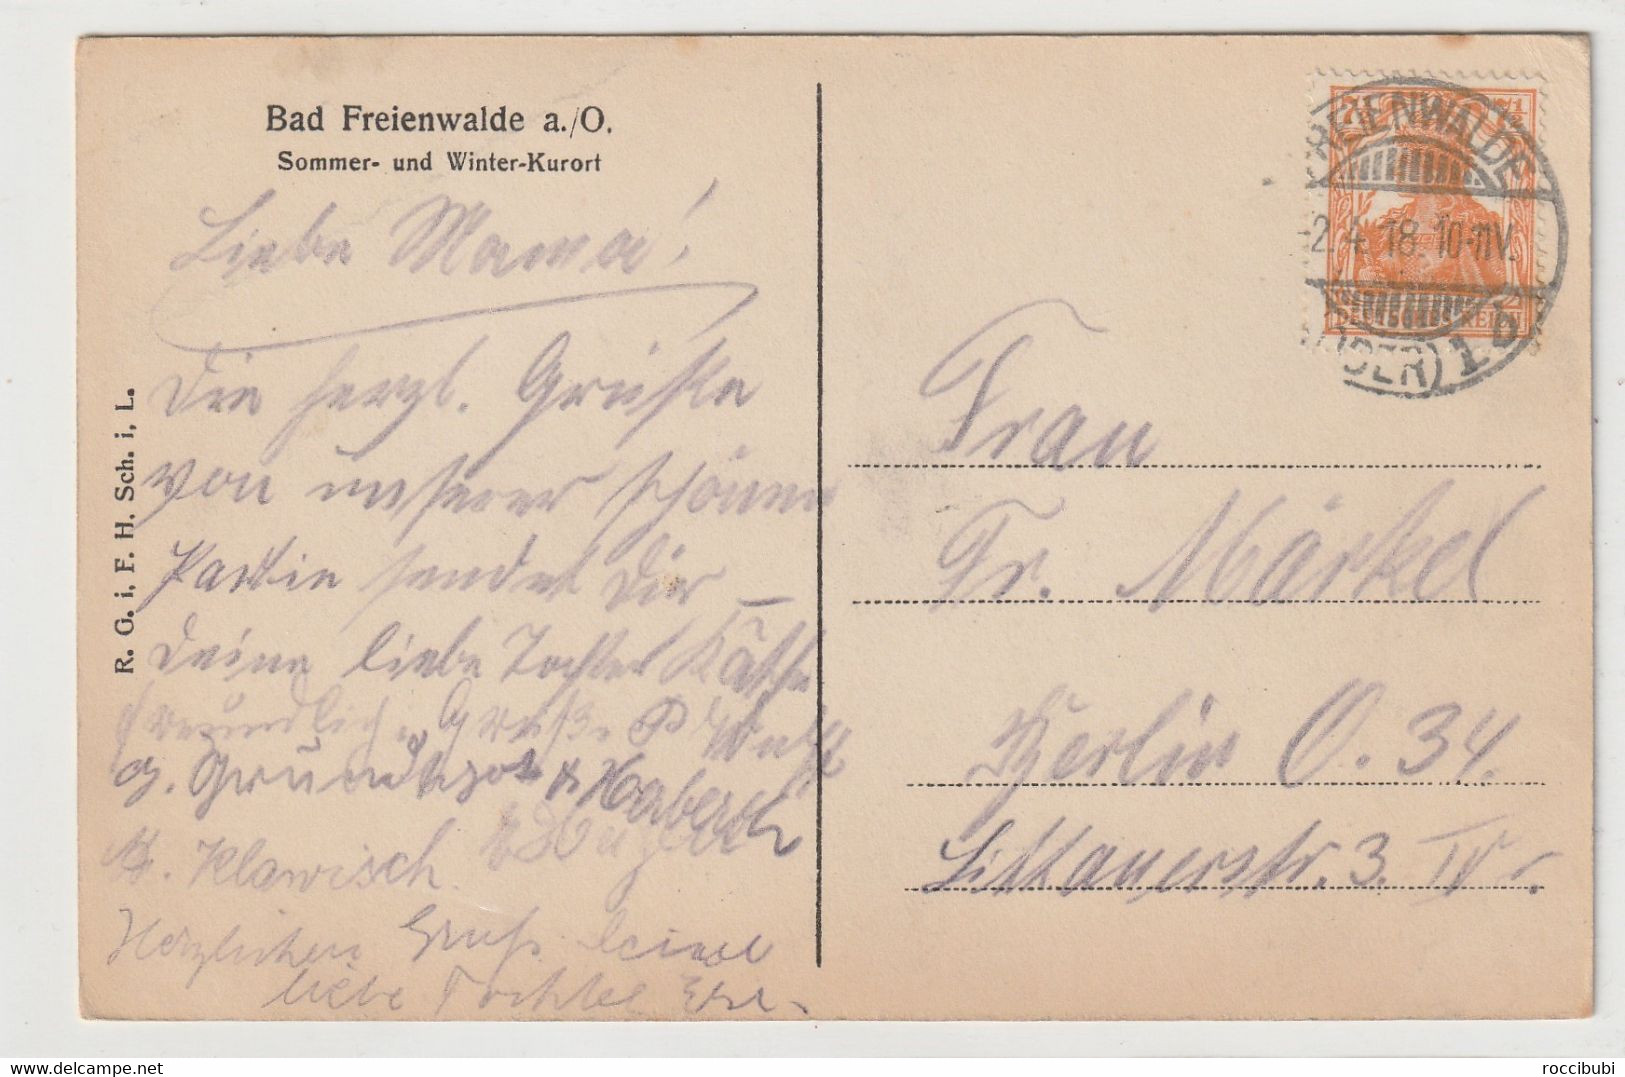 Bad Freienwalde a./O.
Sommer- und Winter-Kurort
R. G. i. F. H. Sch. i. L.
Liebe Mama!
Die herzl. Grüße
von unserer schönen
Partie sendet Dir
Deine liebe Tochter Käthe
freundlich. Grüße
G.
H. Klawisch.
Herzlichen Gruß deine
liebe Tochter
FREIENWALDE
2.4.18. 10-11V.
(ODER) 1 b
7½
DEUTSCHES REICH
Frau
Fr. Märkel
Berlin O. 34.
Littauerstr. 3. IV r.
delcampe.net
roccibubi